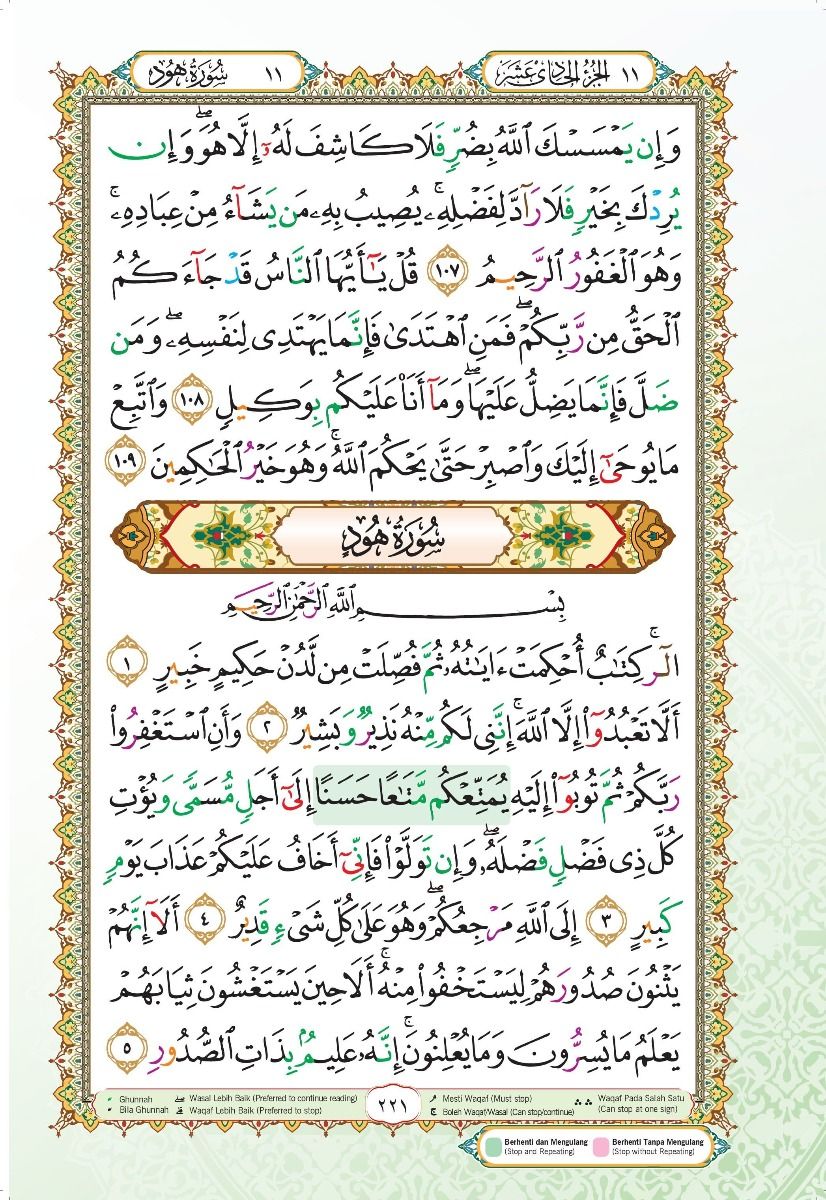 سُورَةُ هُود ١١
الجُزْءُ الحَادِي عَشَرَ ١١
وَإِن يَمْسَسْكَ ٱللَّهُ بِضُرٍّ فَلَا كَاشِفَ لَهُۥٓ إِلَّا هُوَۖ وَإِن
يُرِدْكَ بِخَيْرٍ فَلَا رَآدَّ لِفَضْلِهِۦۚ يُصِيبُ بِهِۦ مَن يَشَآءُ مِنْ عِبَادِهِۦۚ
وَهُوَ ٱلْغَفُورُ ٱلرَّحِيمُ ١٠٧ قُلْ يَـٰٓأَيُّهَا ٱلنَّاسُ قَدْ جَآءَكُمُ
ٱلْحَقُّ مِن رَّبِّكُمْۖ فَمَنِ ٱهْتَدَىٰ فَإِنَّمَا يَهْتَدِى لِنَفْسِهِۦۖ وَمَن
ضَلَّ فَإِنَّمَا يَضِلُّ عَلَيْهَاۖ وَمَآ أَنَا۠ عَلَيْكُم بِوَكِيلٍ ١٠٨ وَٱتَّبِعْ
مَا يُوحَىٰٓ إِلَيْكَ وَٱصْبِرْ حَتَّىٰ يَحْكُمَ ٱللَّهُۚ وَهُوَ خَيْرُ ٱلْحَـٰكِمِينَ ١٠٩
سُورَةُ هُودٍ
بِسْمِ ٱللَّهِ ٱلرَّحْمَـٰنِ ٱلرَّحِيمِ
الٓرۚ كِتَـٰبٌ أُحْكِمَتْ ءَايَـٰتُهُۥ ثُمَّ فُصِّلَتْ مِن لَّدُنْ حَكِيمٍ خَبِيرٍ ١
أَلَّا تَعْبُدُوٓا۟ إِلَّا ٱللَّهَۚ إِنَّنِى لَكُم مِّنْهُ نَذِيرٌ وَبَشِيرٌ ٢ وَأَنِ ٱسْتَغْفِرُوا۟
رَبَّكُمْ ثُمَّ تُوبُوٓا۟ إِلَيْهِ يُمَتِّعْكُم مَّتَـٰعًا حَسَنًا إِلَىٰٓ أَجَلٍ مُّسَمًّى وَيُؤْتِ
كُلَّ ذِى فَضْلٍ فَضْلَهُۥۖ وَإِن تَوَلَّوْا۟ فَإِنِّىٓ أَخَافُ عَلَيْكُمْ عَذَابَ يَوْمٍ
كَبِيرٍ ٣ إِلَى ٱللَّهِ مَرْجِعُكُمْۖ وَهُوَ عَلَىٰ كُلِّ شَىْءٍ قَدِيرٌ ٤ أَلَآ إِنَّهُمْ
يَثْنُونَ صُدُورَهُمْ لِيَسْتَخْفُوا۟ مِنْهُۚ أَلَا حِينَ يَسْتَغْشُونَ ثِيَابَهُمْ
يَعْلَمُ مَا يُسِرُّونَ وَمَا يُعْلِنُونَۚ إِنَّهُۥ عَلِيمٌۢ بِذَاتِ ٱلصُّدُورِ ٥
Ghunnah
Bila Ghunnah
ۖ Wasal Lebih Baik (Preferred to continue reading)
ۗ Waqaf Lebih Baik (Preferred to stop)
٢٢١
مـ Mesti Waqaf (Must stop)
ج Boleh Waqaf/Wasal (Can stop/continue)
ۛ ۛ Waqaf Pada Salah Satu
(Can stop at one sign)
Berhenti dan Mengulang
(Stop and Repeating)
Berhenti Tanpa Mengulang
(Stop without Repeating)